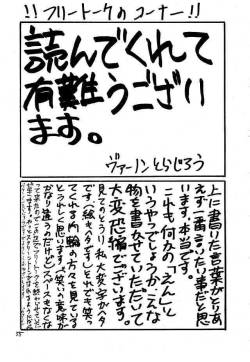 !!フリートークのコーナー!!
読んでくれて
有難うござい
ます。
ヴァーノンとらじろう
上に書いた言葉がとりあ
えず一番言いたい事だと思
います。本当です。
これも何かの「えん」と
いうやつでしょうか。こんな
物を書きせていただいて
大変恐縮でございます。
見てのとうり私、大変字がヘタ
です(絵もヘタですし)。それでも笑っ
てくれる内輪の方々を見ている
とうれしく思います。(笑いの意味が
かなり違うのだけど)スペースもなくな